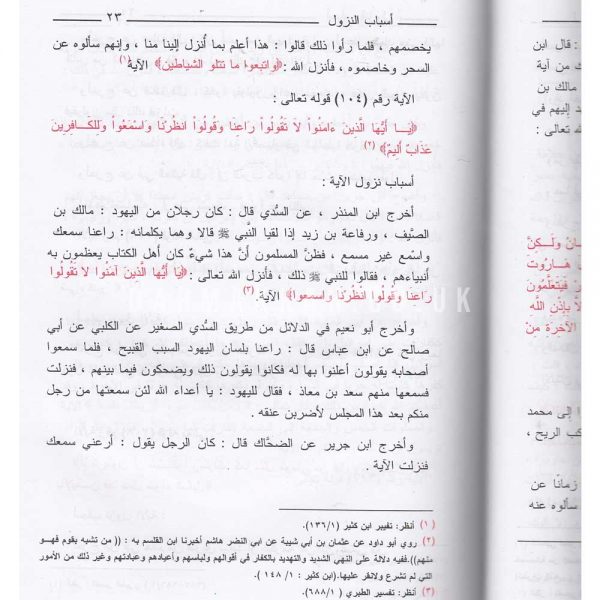 أسباب النزول
٢٣
يخصمهم ، فلما رأوا ذلك قالوا : هذا أعلم بما أُنزل إلينا منا ، وإنهم سألوه عن
السحر وخاصموه ، فأنزل الله :﴿واتبعوا ما تتلو الشياطين﴾ الآية(١)
الآية رقم (١٠٤) قوله تعالى :
﴿يَـا أَيُّهَا الَّذِينَ ءَامَنُواْ لَا تَقُولُواْ رَاعِنَا وَقُولُواْ انظُرْنَا وَاسْمَعُواْ وَلِلكَافِرِينَ
عَذَابٌ أَلِيمٌ﴾ (٢)
أسباب نزول الآية :
أخرج ابن المنذر ، عن السُّدي قال : كان رجلان من اليهود : مالك بن
الصَّيف ، ورفاعة بن زيد إذا لقيا النَّبي ﷺ قالا وهما يكلمانه : راعنا سمعك
واسْمع غير مسمع ، فظنَّ المسلمون أنَّ هذا شيءٌ كان أهل الكتاب يعظمون به
أنبياءهم ، فقالوا للنبي ﷺ ذلك ، فأنزل الله تعالى :﴿يَا أَيُّهَا الَّذِينَ آمَنُوا لَا تَقُولُوا
رَاعِنَا وَقُولُوا انْظُرْنَا وَاسمعوا﴾ الآية. (٣)
وأخرج أبو نعيم في الدلائل من طريق السُّدي الصغير عن الكلبي عن أبي
صالح عن ابن عباس قال : راعنا بلسان اليهود السب القبيح ، فلما سمعوا
أصحابه يقولون أعلنوا بها له فكانوا يقولون ذلك ويضحكون فيما بينهم ، فنزلت
فسمعها منهم سعد بن معاذ ، فقال لليهود : يا أعداء الله لئن سمعتها من رجل
منكم بعد هذا المجلس لأضربن عنقه .
وأخرج ابن جرير عن الضحّاك قال : كان الرجل يقول : أرعني سمعك
فنزلت الآية .
(١) أنظر: تفيير ابن كثير (١٣٦/١)
(٢) روي أبو داود عن عثمان بن أبي شيبة عن ابي النضر هاشم أخبرنا ابن القلسم به : (( من تشبه بقوم فهـو
منهم)).ففيه دلالة على النهي الشديد والتهديد بالكفار في أقوالهم ولباسهم وأعيادهم وعباداتهم وغير ذلك من الأمور
التي لم تشرع ولانقر عليها.(ابن كثير : ١/ ١٤٨ ).
(٣) أنظر: تفسير الطبري (٦٨٨/١)
: قال ابن
ك من آية
مالك بن
د إليهم في
له تعالى :
انُ وَلَـكِنَّ
هَـارُوتَ
فَيَتَعَلَّمُونَ
لَّا بِإِذْنِ اللَّهِ
الآخِرَةِ مِنْ
ا إلى محمد
كب الريح ،
زمانًا عن
سألوه عنه
UK